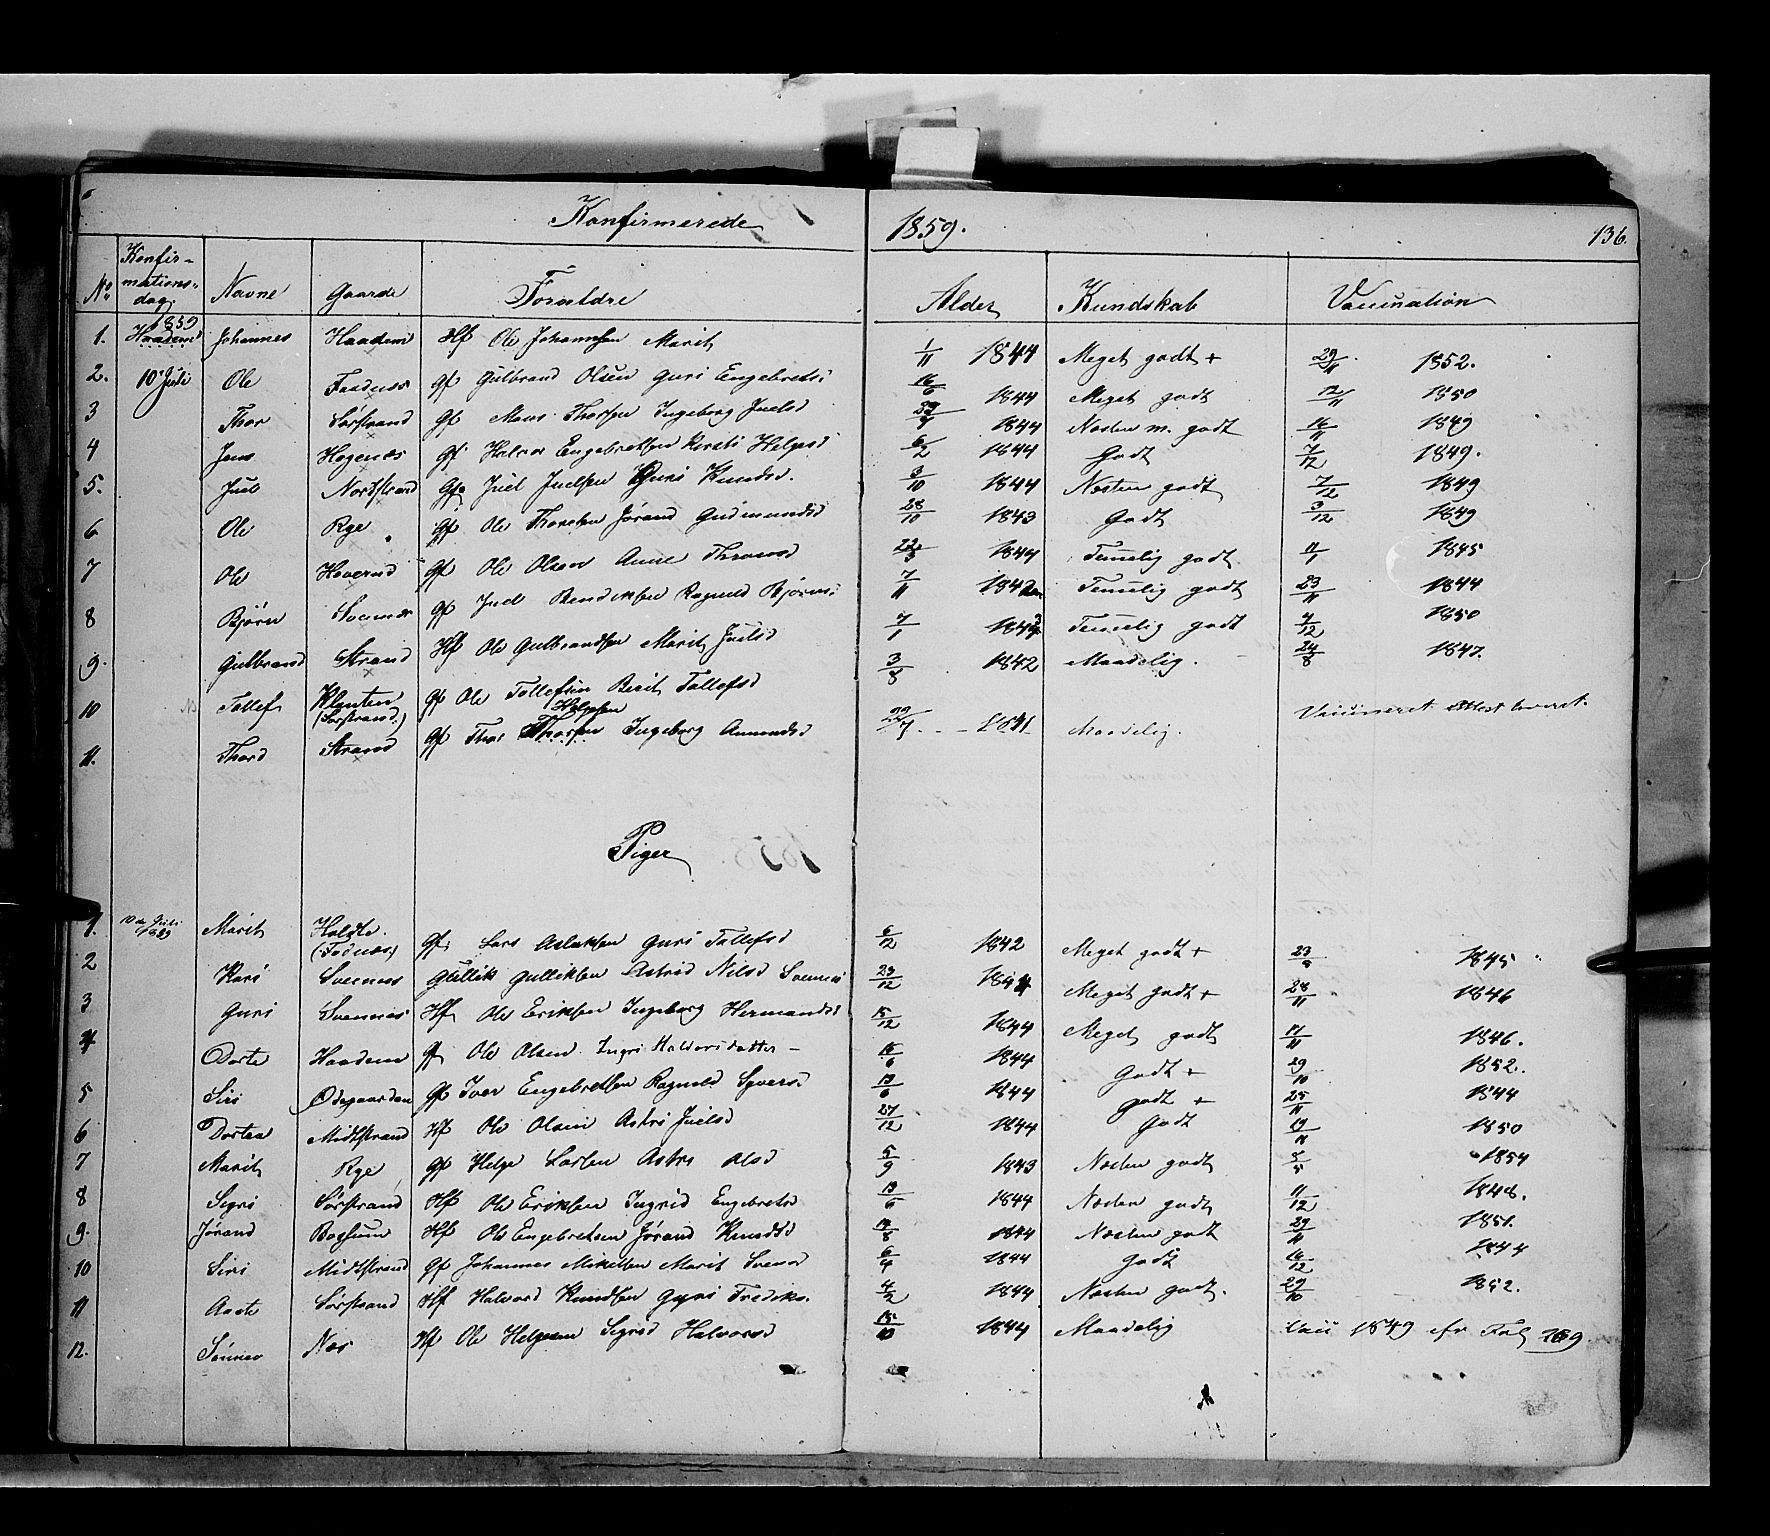 Konfirmerede 1859. 136.
No Konfirmationsdag. Navne Gaarde Forældre Alder Kundskab Vaccination
1. 1859 Haadem Johannes Haadem Hf Ole Johannsen Marit 1/11 1844 Meget godt + 29/11 1852.
2. 10 Juli Ole Faadnæs Gf Gulbrand Olsen Guri Engebretsd 16/6 1844 Meget godt 12/11 1850
3 Thor Sørstrand Gf Mons Thorsen Ingeborg Juelsd 1844 Næsten m. godt 16/11 1849
4 Jens Høgenæs Gf Halvor Engebretsen Kersti Helgesd 6/2 1844 Godt 7/12 1849.
5. Juel Nordstrand Gf Juel Juelsen Guri Knudsd. 3/10 1844 Næsten godt 7/12 1849
6 Ole Rye Gf Ole Thorsten Jørand Gudmundsd 28/10 1843 Godt 3/12 1849
7 Ole Haverud Gf Ole Olsen Anne Thronsd 1844 Temelig godt 11/1 1845
8 Bjørn Svennæs Gf Juel Bendiksen Ragnild Bjørnsd 7/11 1842 Temelig godt 23/11 1844
9. Gulbrand Strand Hf Ole Gulbrandsen Marit Juelsd 4/1 1843 Temelig godt 4/12 1850
10 Tollef Klanten (Sørstrand) Gf Ole Tollefsen Berit Tollefsd 3/8 1842 Maadelig. 24/8 1847.
11. Thord Strand Gf Thor Helgesen Ingeborg Amundsd 1841 Maadelig. Vaccineret Attest leveret.
Piger
1. 10de Juli 1859 Marit Haldte. (Fodnæs) Gf Lars Aslaksen Guri Tollefsd 6/12 1842 Meget godt + 23/8 1845
2 Kari Svennæs Gullik Gulliksen Astrid Nilsd Svennæs 23/12 1844 Meget godt + 28/11 1846
3 Guri Svennæs Hf Ole Eriksen Ingeborg Hermandsd 15/12 1844 Meget godt 17/11 1846.
4 Dorte Haadem Gf Ole Olsen. Ingri Halvorsdatter – 15/6 1844 Godt + 29/10 1852.
5 Siri Ødegaarden Gf Iver Engebretsen Ragnild Syversd 13/6 1844 godt + 25/11 1844
6 Dortea Midtstrand Hf Ole Olsen Astri Juelsd 27/12 1844 Godt 19/11 1850
7 Marit Rye Gf Helge Larsen Astri Olsd 5/9 1843 Næsten godt 7/5 1854
8 Sigri Sørstrand Hf Ole Eriksen Ingrid Engebretsd 13/6 1844 Næsten godt 11/12 1848.
9. Jørand Baghuun Hf Ole Engebretsen Jørand Knudsd 14/8 1844 Næsten godt 29/11 1851.
10 Siri Midtstrand Gf Johannes Mikelsen Marit Svensd 6/4 1844 Godt 16/12 1844
11 Aaste Sørstrand Hf Halvord Knudsen Guri Frediks. 4/2 1844 Næsten godt. 29/10 1852.
12. Sønnev Næs Hf Ole Helgesen Sigrid Halvorsd 15/10 1844 Maadelig Vacc 1849 cfr Fol 169.